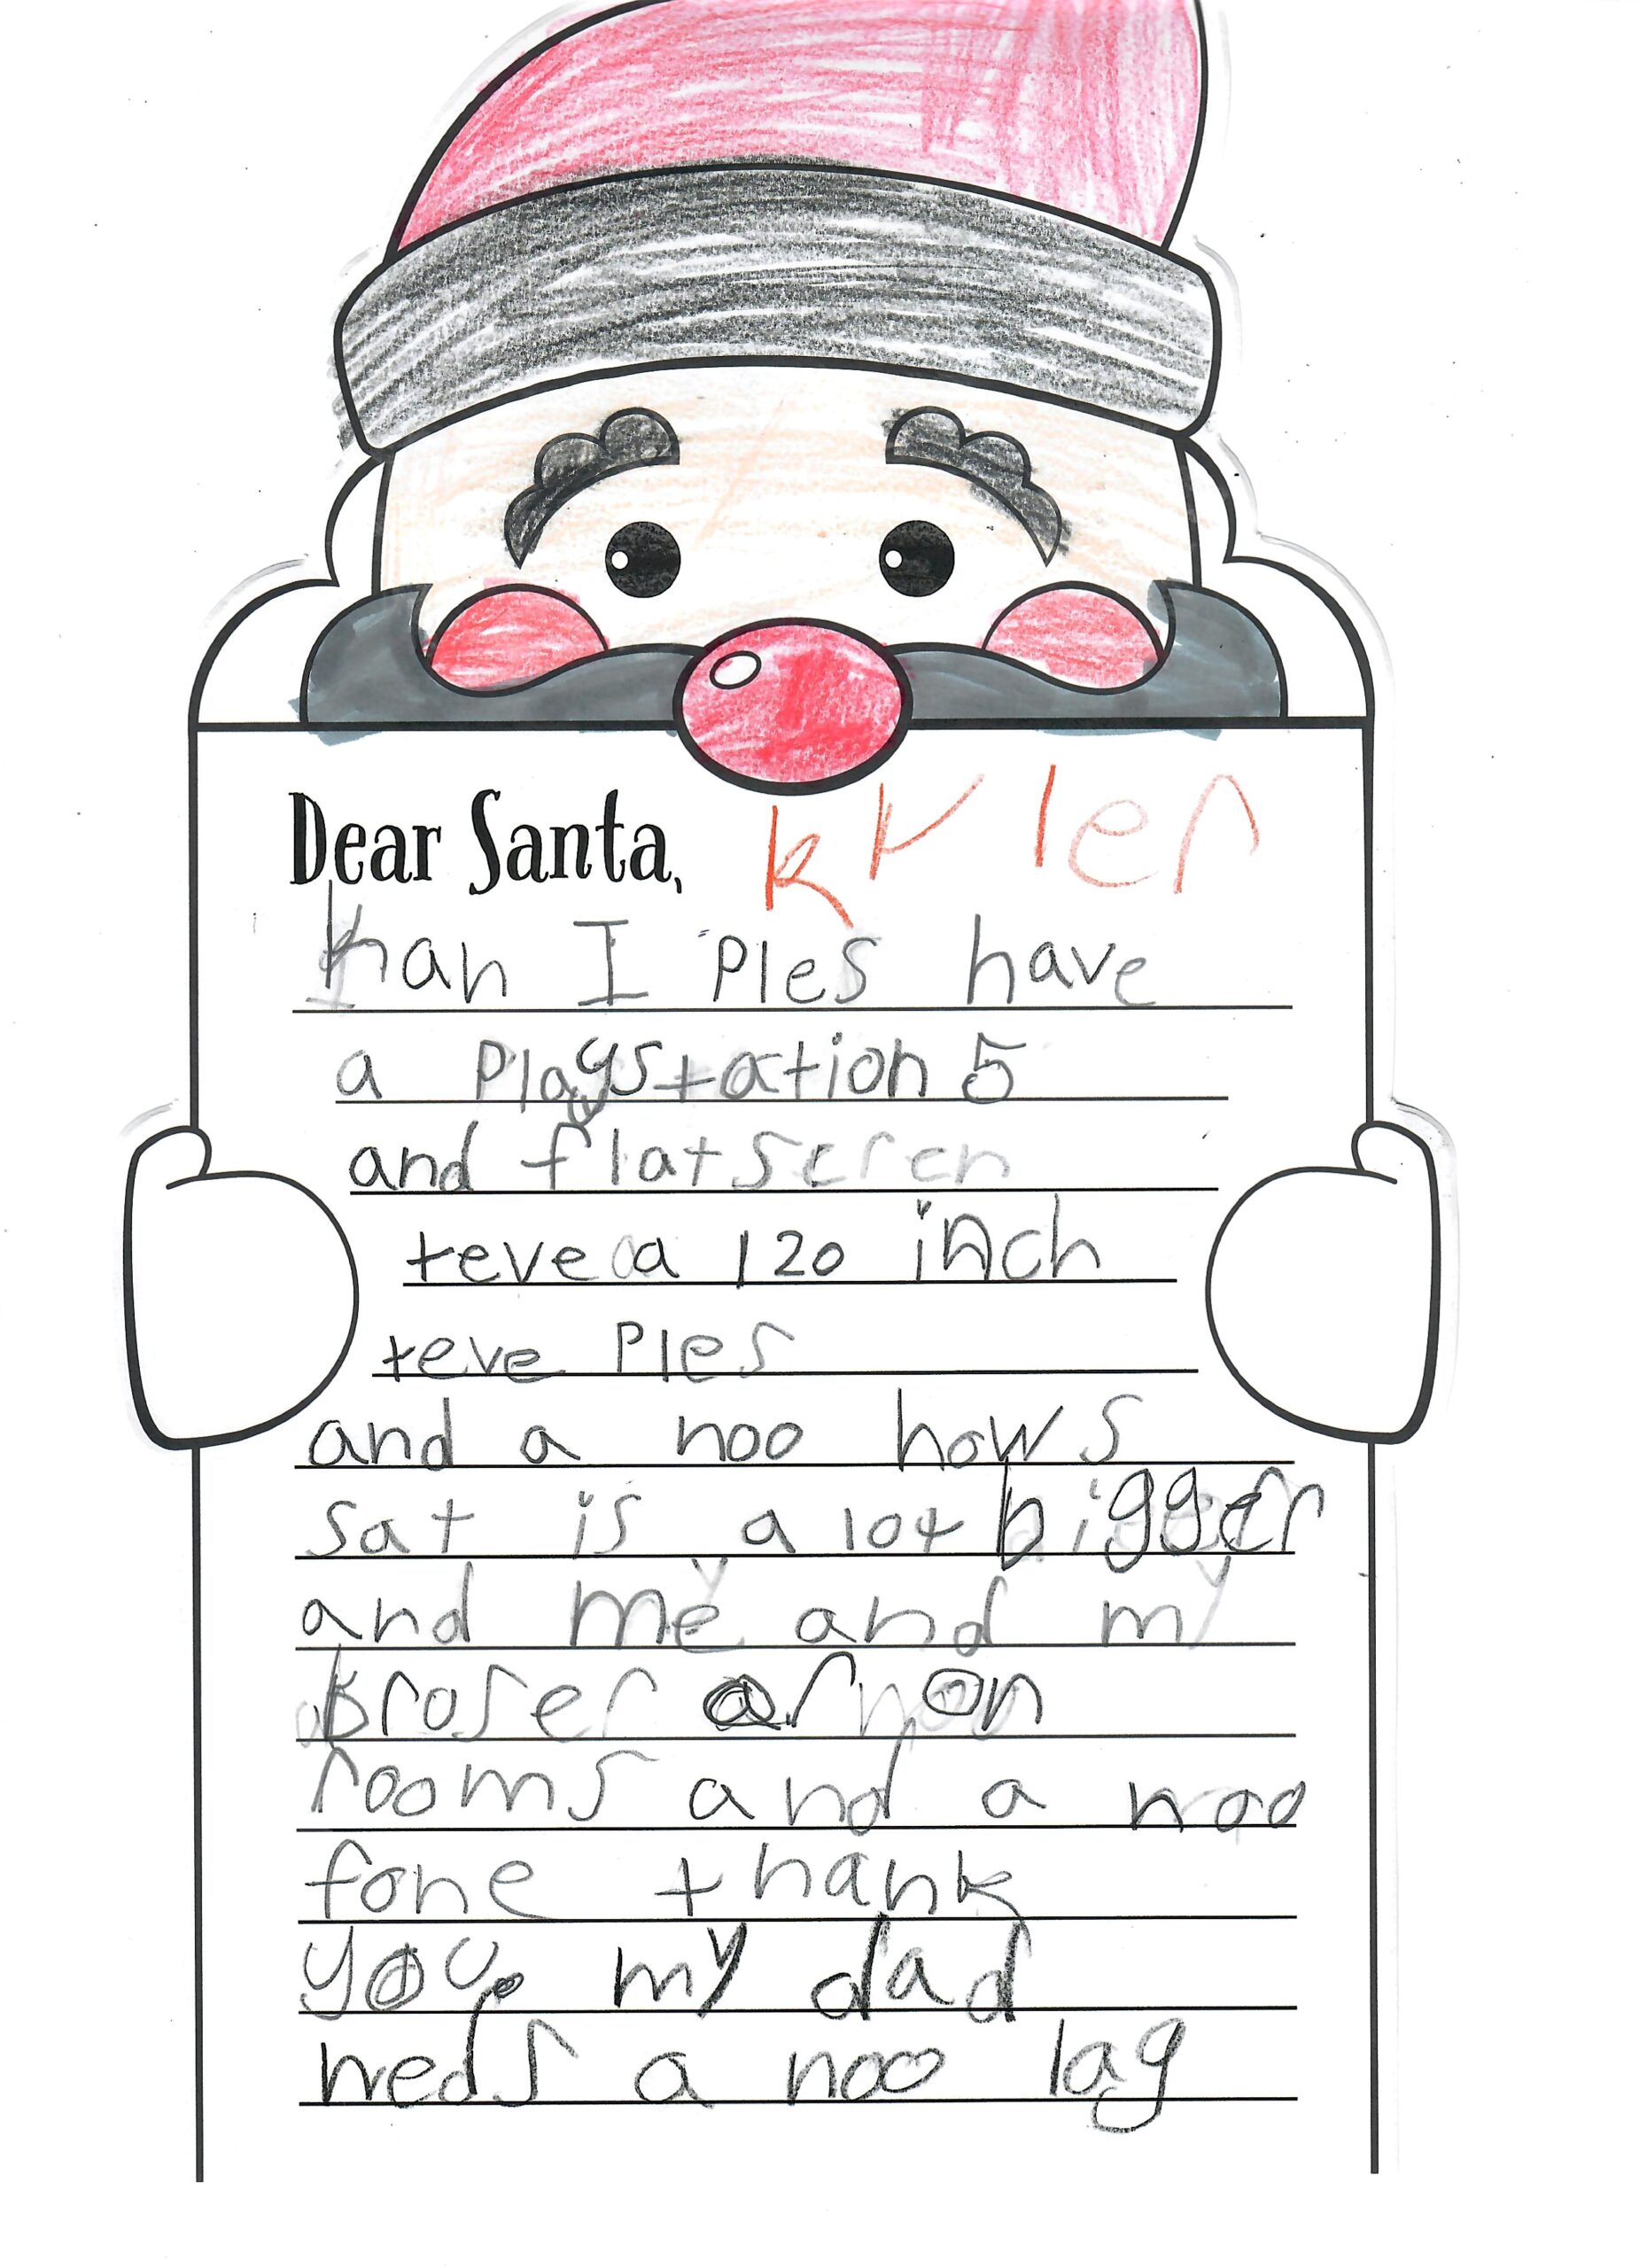 Dear Santa, Kyler
kan I Ples have
a Playstation 5
and flatscren
teve a 120 inch
teve Ples
and a noo hows
sat is a lot bigger
and me and my
broser ar on
rooms and a noo
fone thank
you. my dad
neds a noo lag